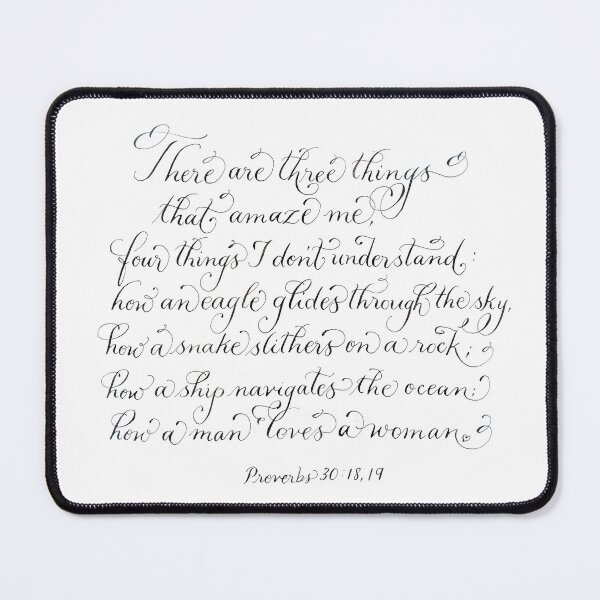 There are three things
that amaze me,
four things I don't understand:
how an eagle glides through the sky,
how a snake slithers on a rock;
how a ship navigates the ocean;
how a man loves a woman.
Proverbs 30:18,19